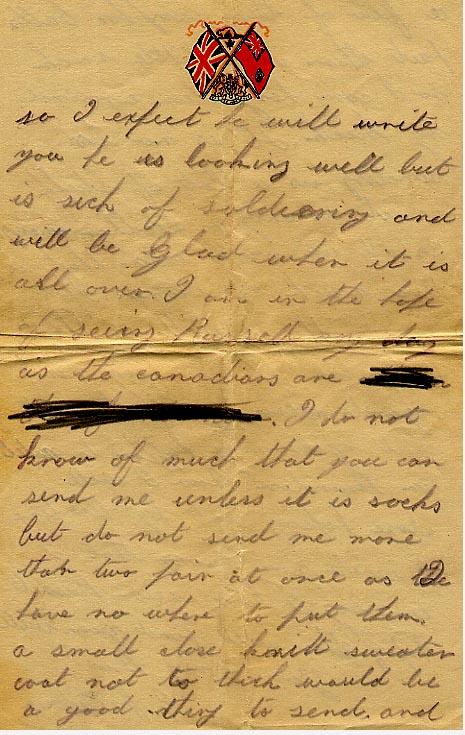 so I expect he will write
you he is looking well but
is sick of soldiering and
will be Glad when it is
all over. I am in the hope
of seeing any day
as the canadians are
. I do not
know of much that you can
send me unless it is socks
but do not send me more
than two pair at once as we
have no where to put them.
a small close knitt sweater
coat not to thick would be
a good thing to send. and